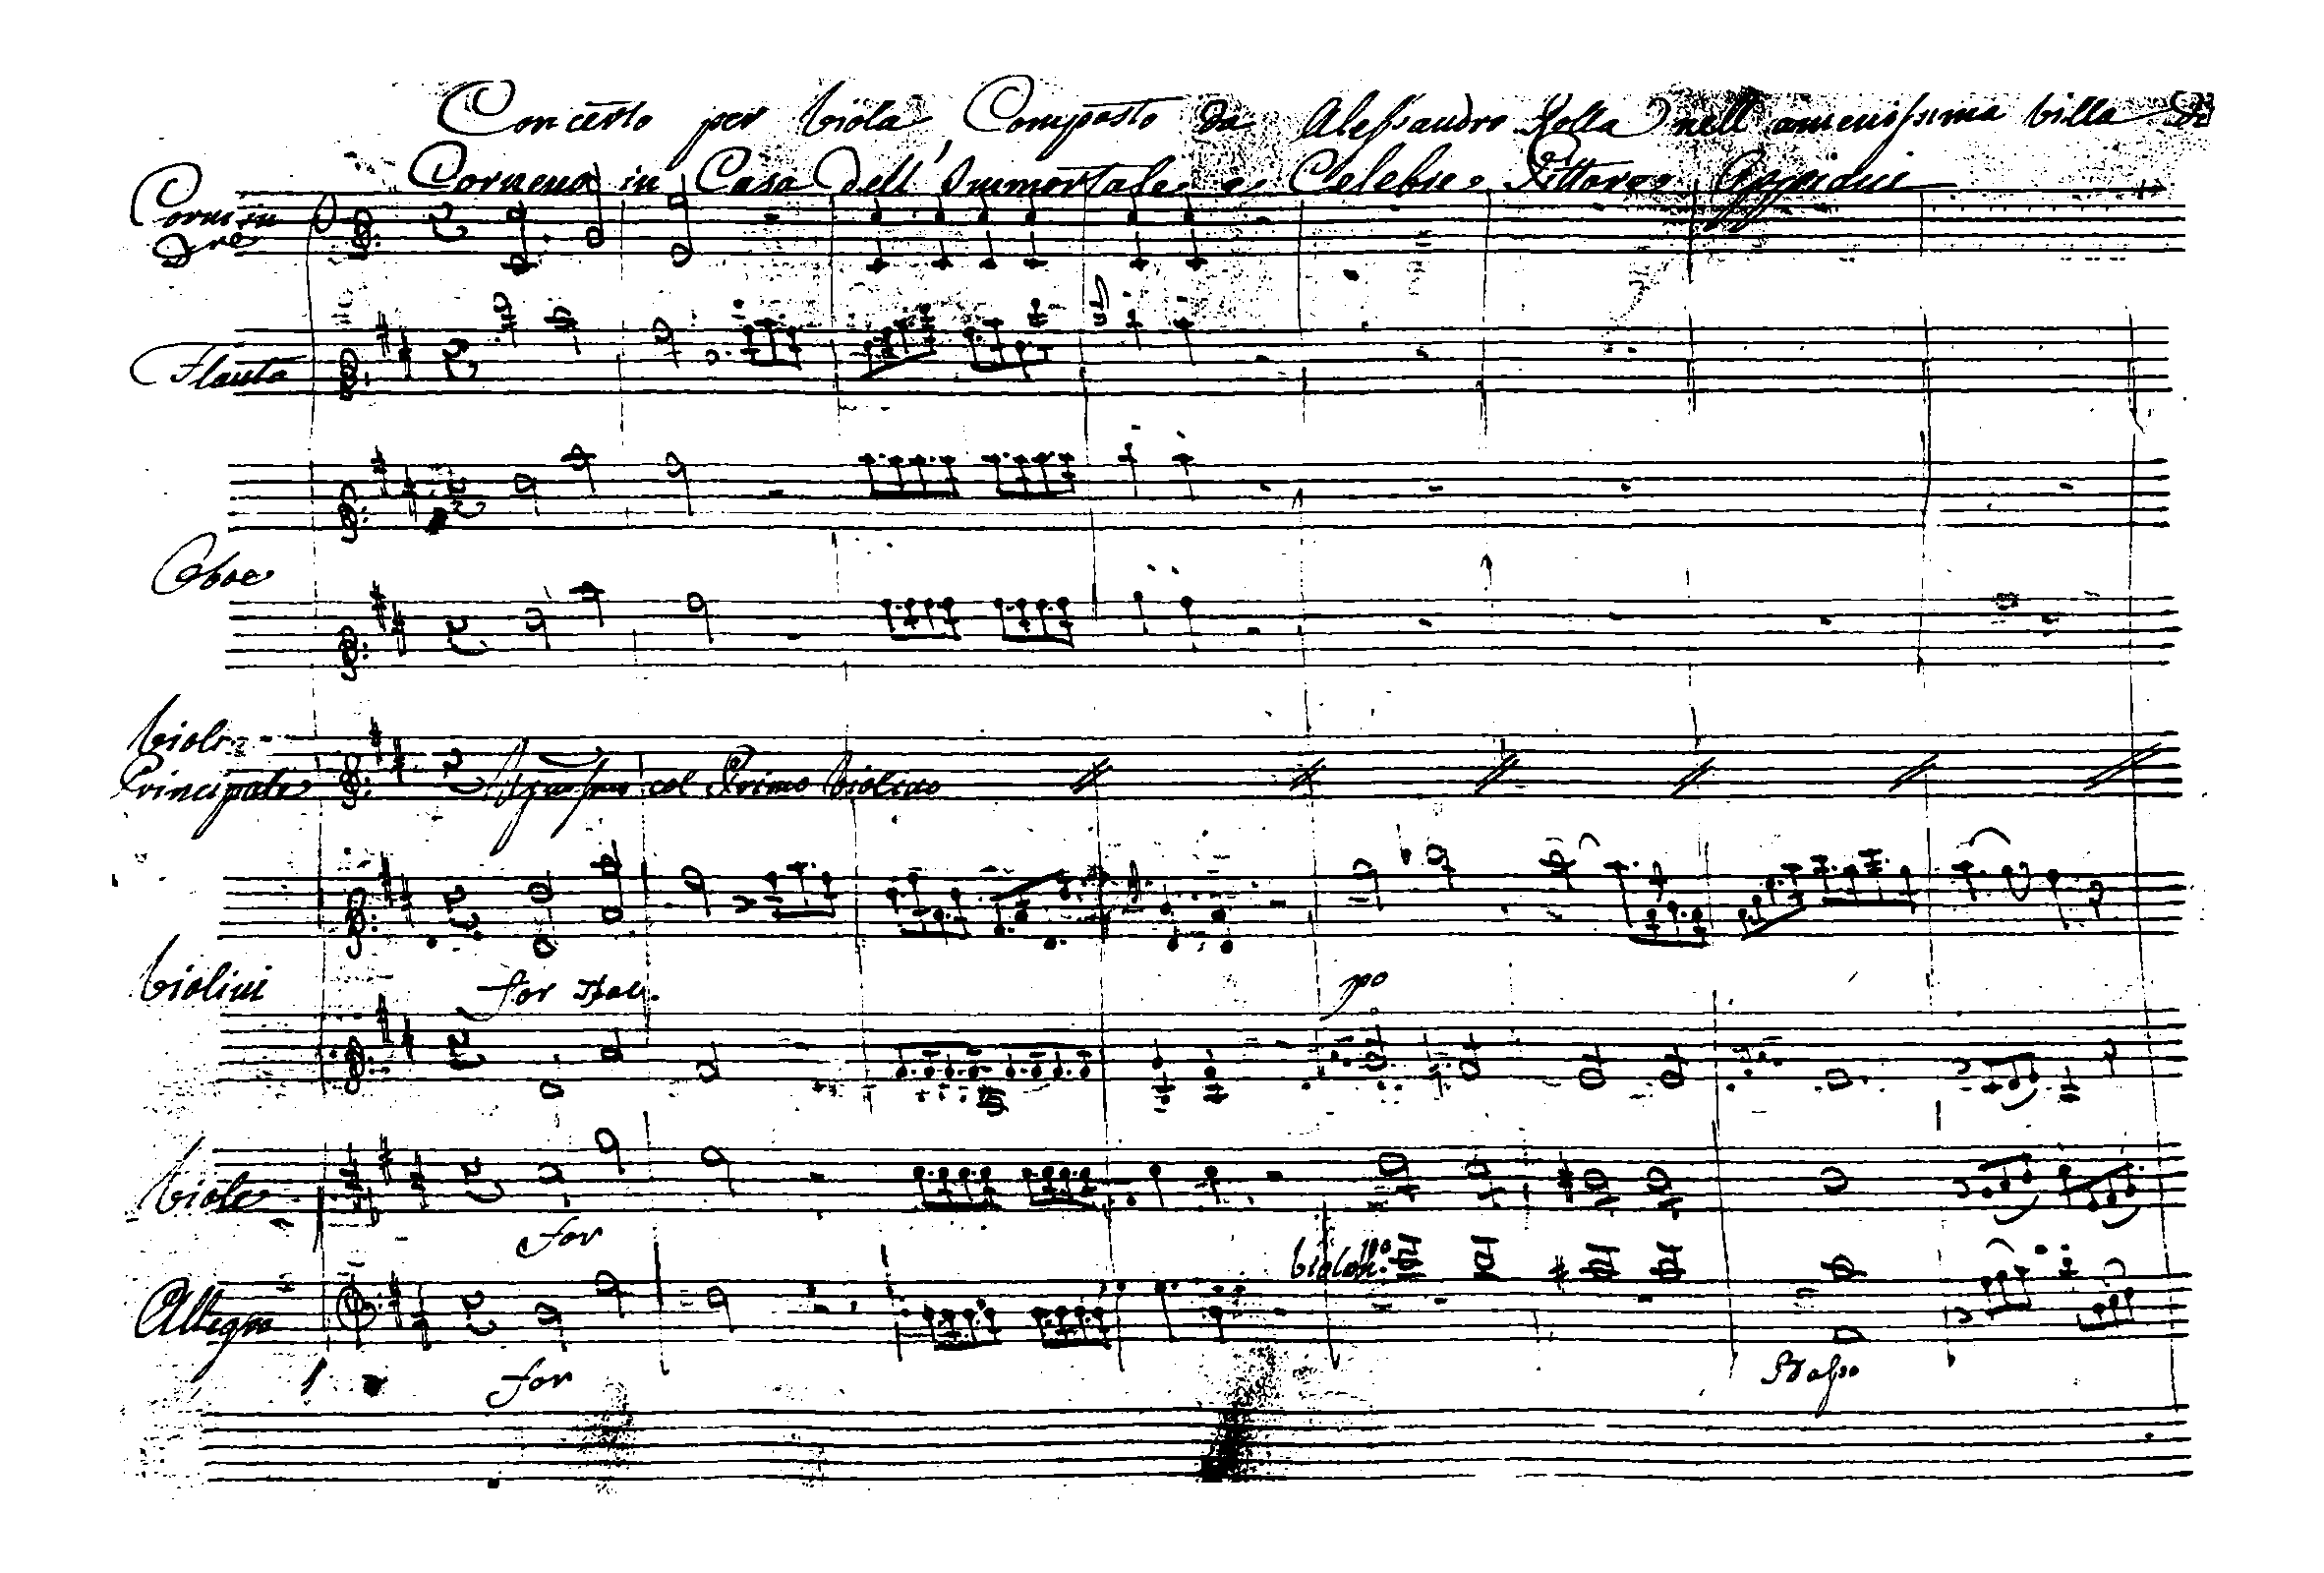 Concerto per Viola Composto da Alessandro Rolla nell'amenissima Villa di
Corneno in Casa dell'Immortale e Celebre Pittore Appiani
Corni in
Dre
Flauto
Oboe
Viola
Principale
col Primo Violino
Violini
for
po
Viole
for
Violon:
Allegro
for
Basso